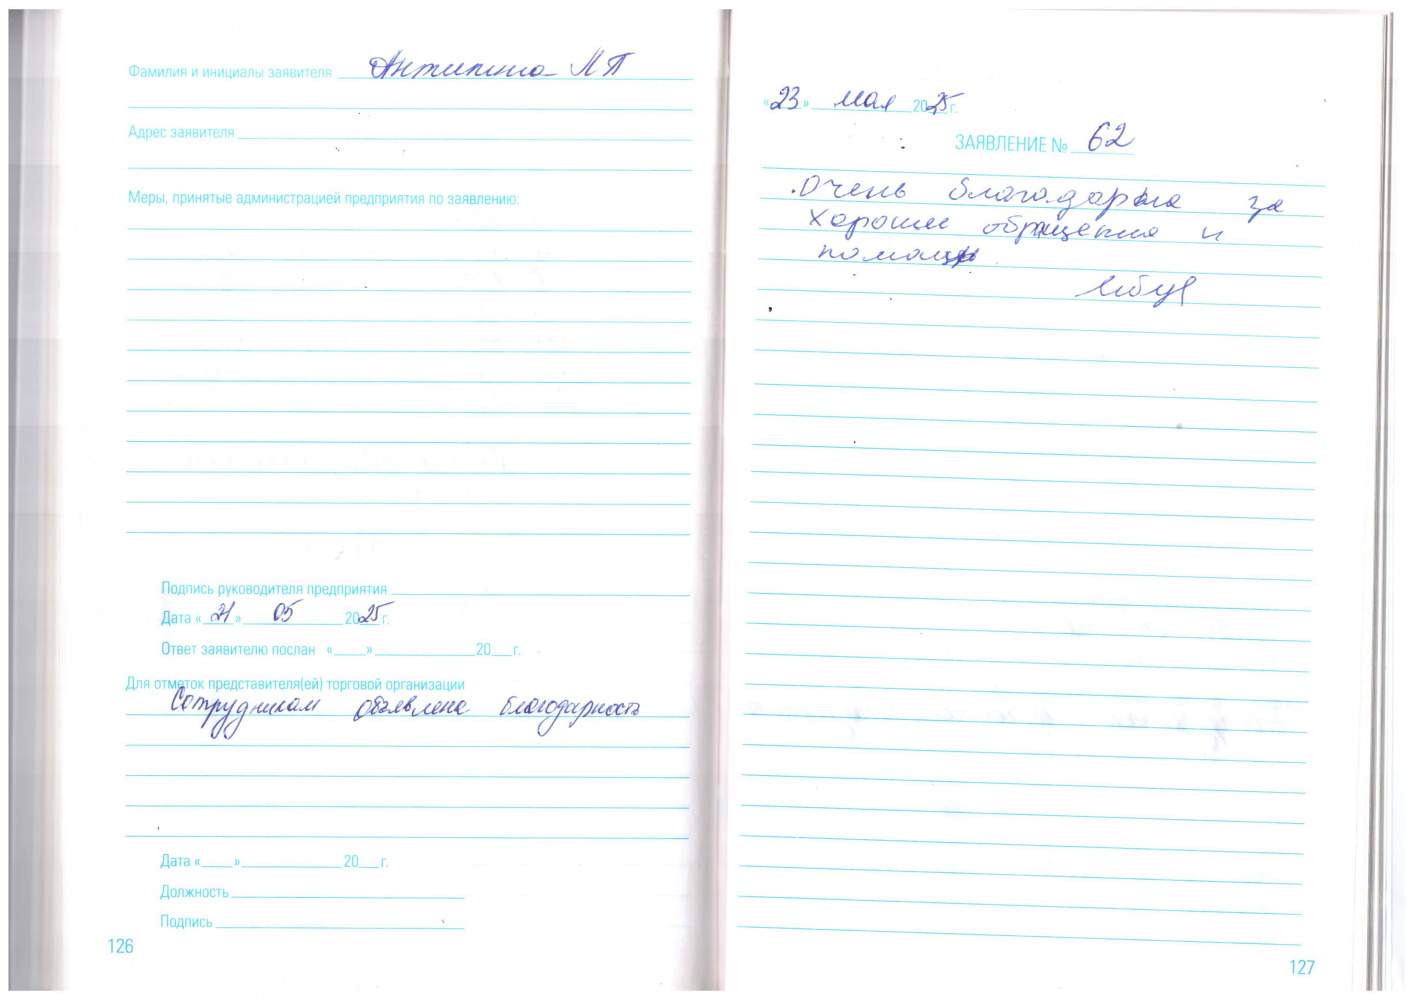 Фамилия и инициалы заявителя Антипина Л П
Адрес заявителя
Меры, принятые администрацией предприятия по заявлению:
Подпись руководителя предприятия
Дата « 21 » 05 2025 г.
Ответ заявителю послан «____» ____ 20__ г.
Для отметок представителя(ей) торговой организации
Сотрудникам объявлена благодарность
Дата «____» ____ 20__ г.
Должность
Подпись
126
«23» мая 2025 г.
ЗАЯВЛЕНИЕ № 62
Очень благодарна за
хороши обращения и
помощь
127